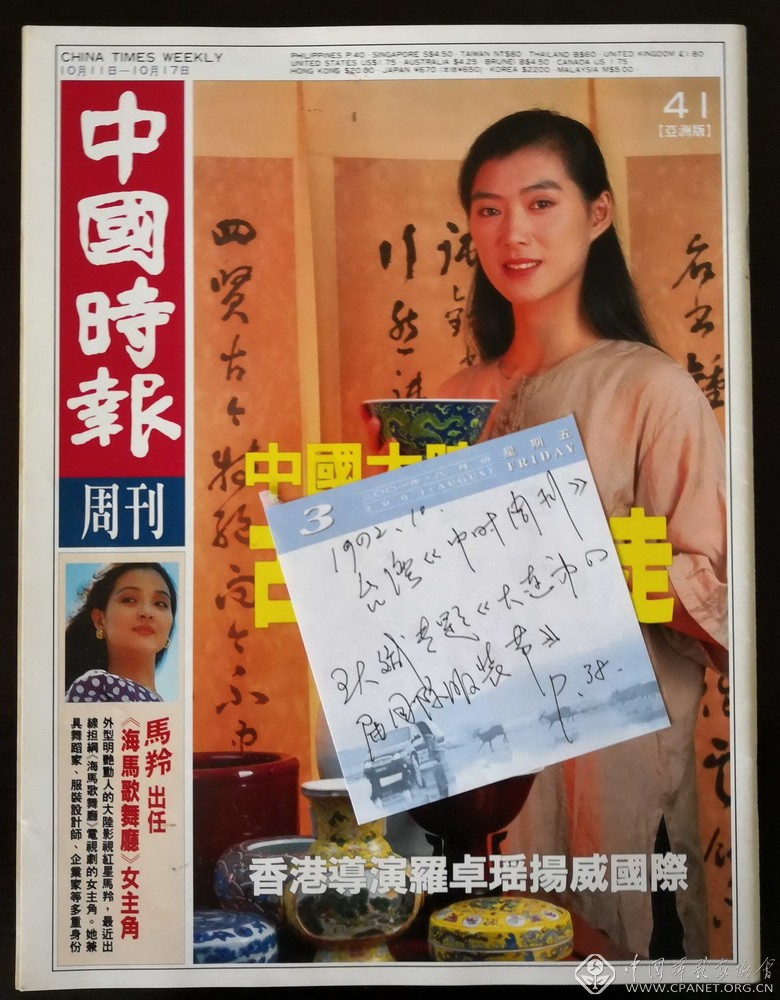 CHINA TIMES WEEKLY
10月11日—10月17日
PHILIPPINES P.40 · SINGAPORE S$4.50 · TAIWAN NT$80 · THAILAND B$60 · UNITED KINGDOM £1.80
UNITED STATES US$1.75 · AUSTRALIA $4.25 · BRUNEI B$4.50 · CANADA US 1.75
HONG KONG $20.00 JAPAN ¥670 (本体¥650) KOREA $2200 · MALAYSIA M$5.00
中國時報
周刊
41
【亞洲版】
四賢古今特絕
中國大陸
古
走
3
二〇〇一年·八月份
2001·AUGUST
星期五
FRIDAY
1992.10.
台湾《中时周刊》
王大斌专题《大连市四
届国际服装节》
P.38.
馬羚 出任
《海馬歌舞廳》女主角
外型明艷動人的大陸影視紅星馬羚，最近出
線担綱《海馬歌舞廳》電視劇的女主角。她兼
具舞蹈家、服裝設計師、企業家等多重身份
香港導演羅卓瑤揚威國際
中国摄影家协会
WWW.CPANET.ORG.CN